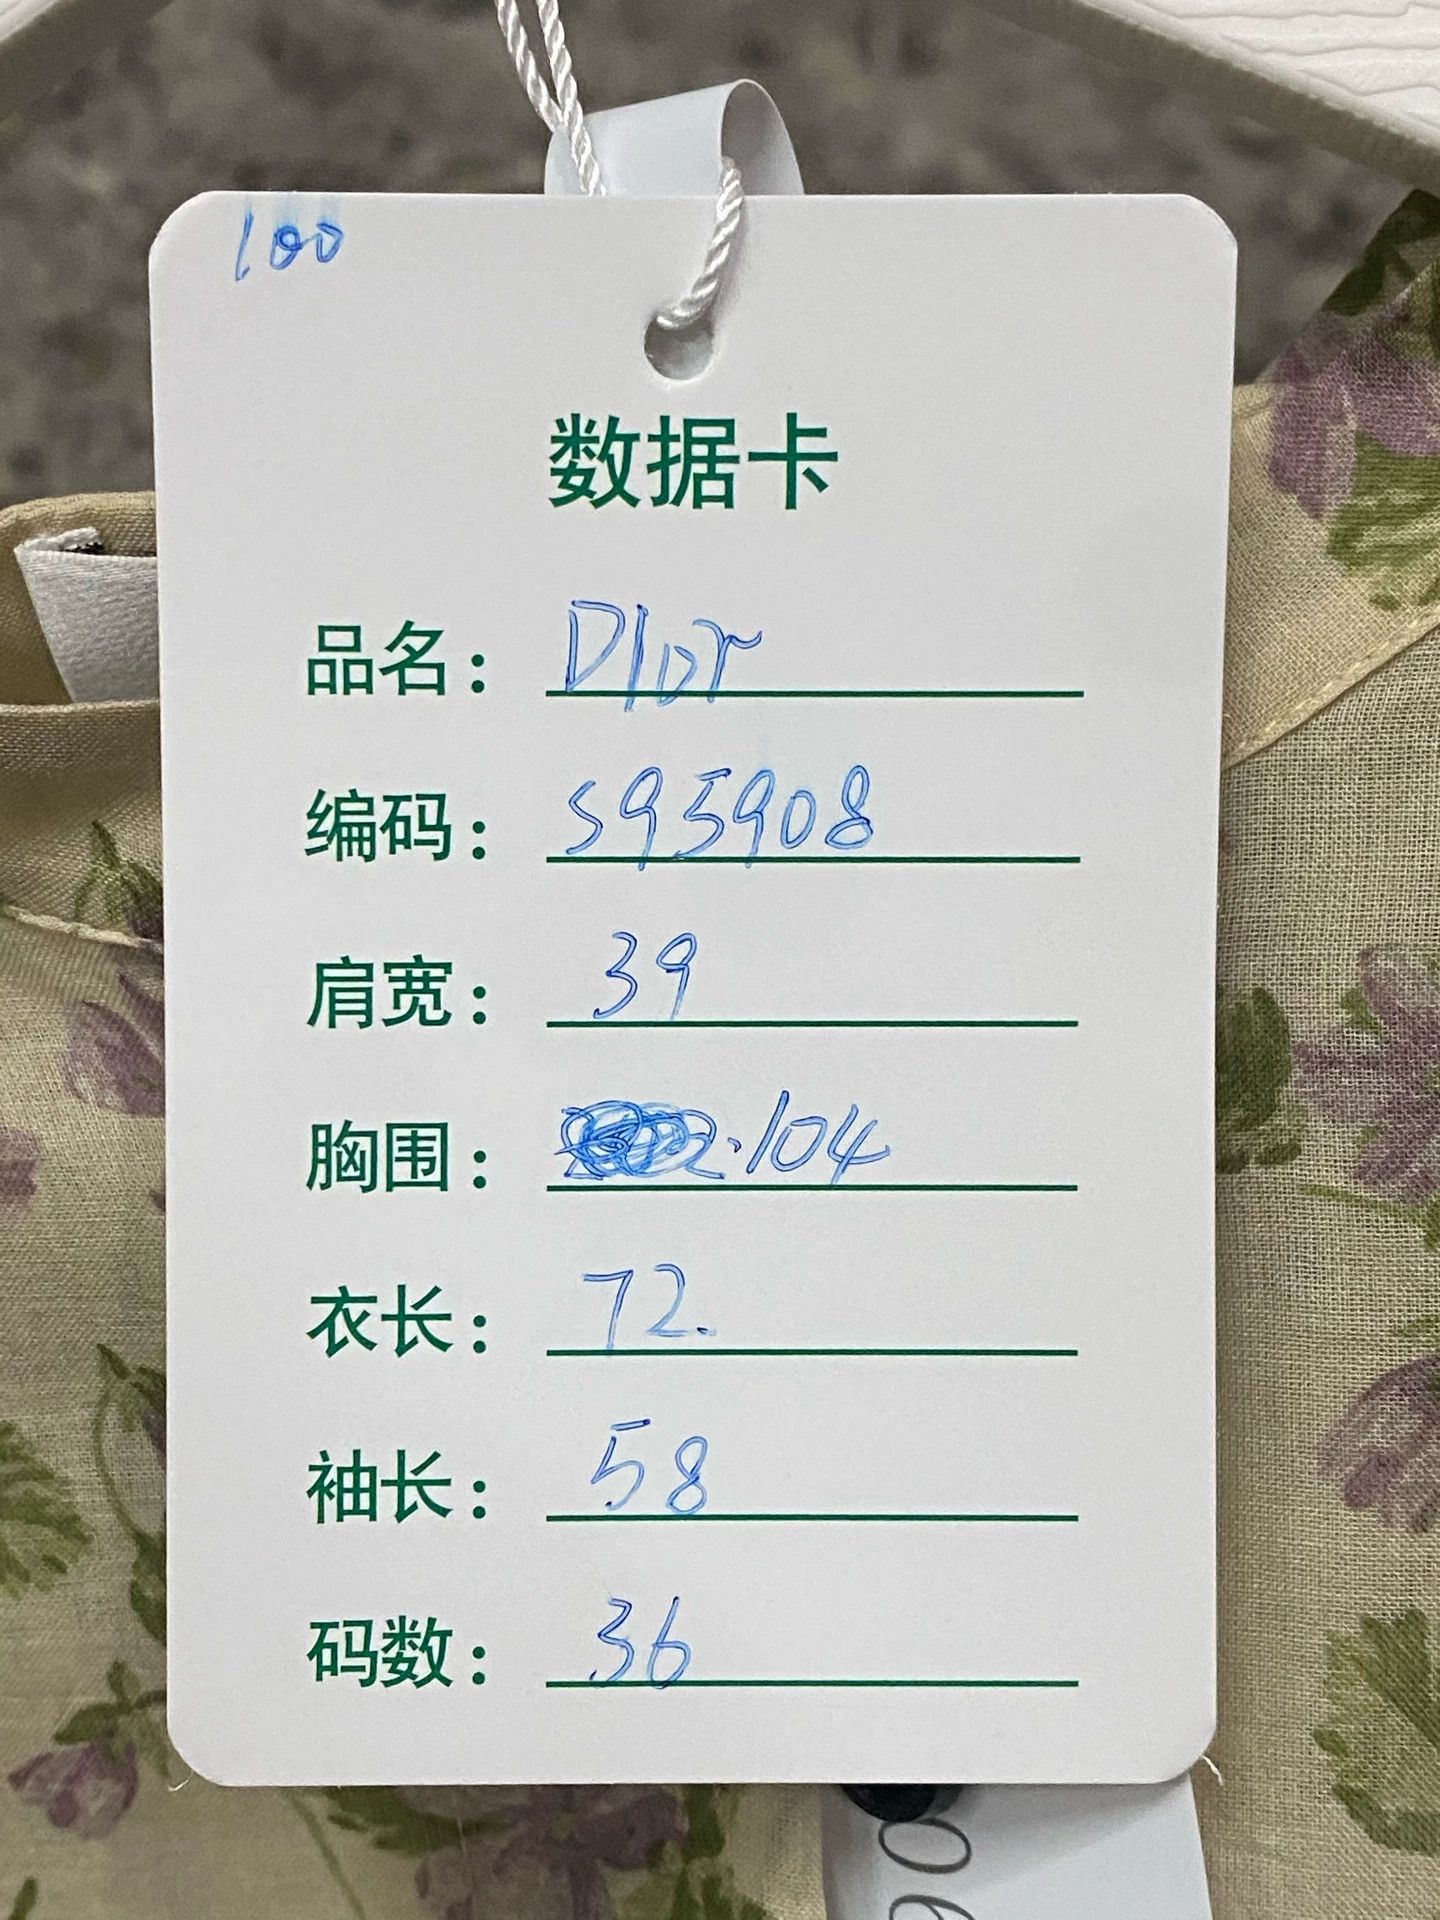 100
数据卡
品名：Dior
编码：S95908
肩宽：39
胸围：104
衣长：72.
袖长：58
码数：36
06